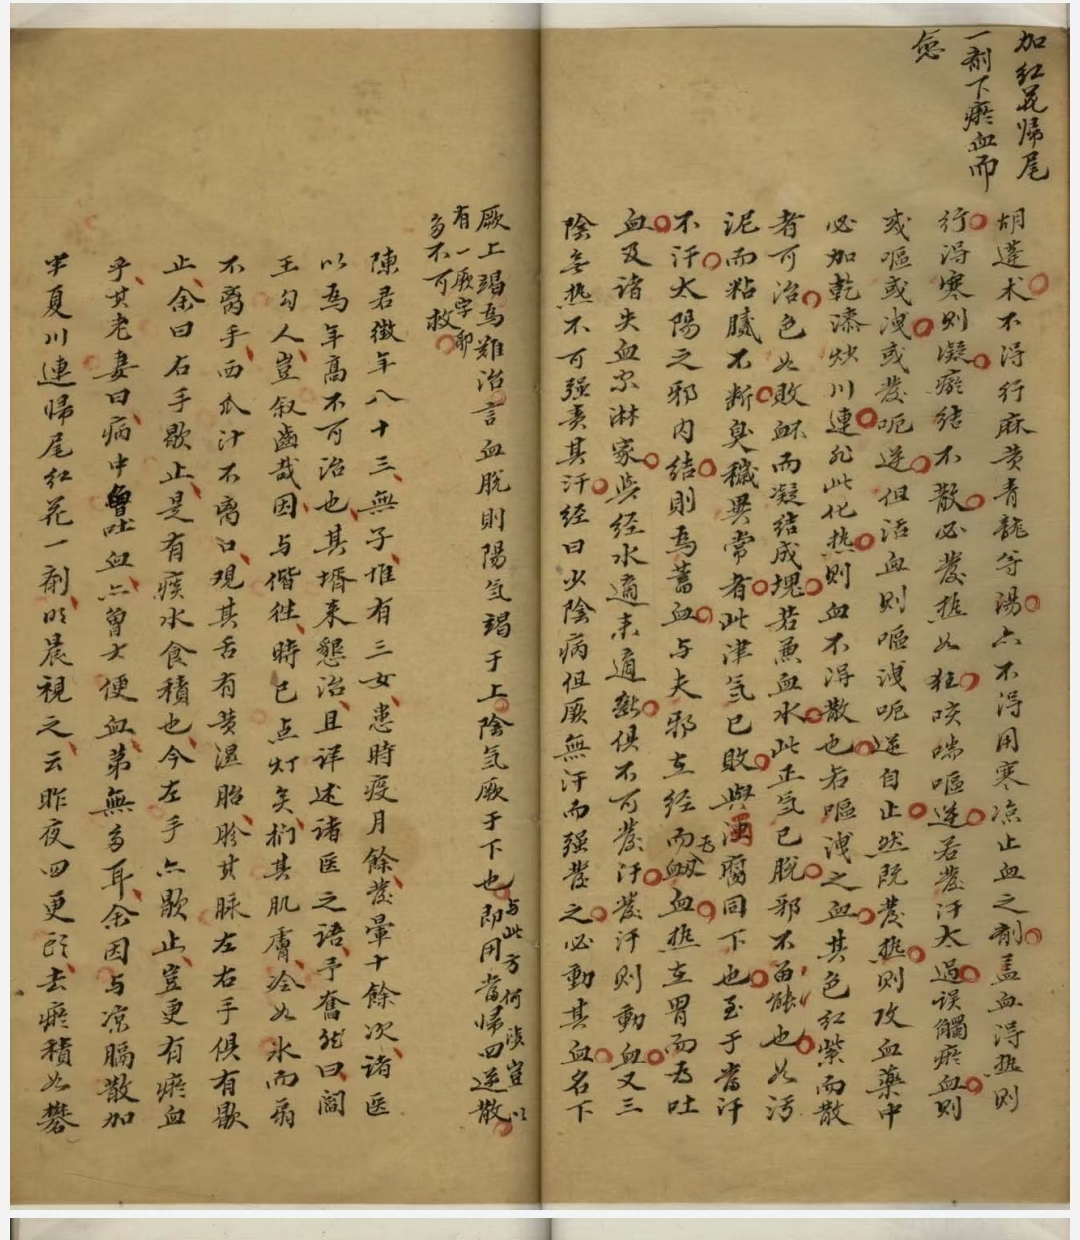 加紅花歸尾
一劑下瘀血而
愈
胡蓬术不得行麻黄青龍等湯亠不得用寒凉止血之劑盖血得热则
行得寒则凝瘀结不散必發热如狂咳喘嘔逆若發汗太過誤觸瘀血则
或嘔或洩或發呃逆但活血则嘔洩呃逆自止然既發热则攻血藥中
必加乾漆炒川連非此化热则血不得散也若嘔洩之血其色紅紫而散
者可治色如敗衃而凝结成塊若魚血水此正氣已脱邪不留能也如污
泥而粘膩不断臭穢異常者此津氣已敗與濁腐同下也至于當汗
不汗太陽之邪内结则為蓄血与夫邪在經而為衂血热在胃而為吐
血及诸失血家淋家與經水適来適断俱不可發汗發汗则動血又三
陰無热不可强责其汗經曰少陰病但厥無汗而强發之必動其血名下
厥上竭為難治言血脱則陽氣竭于上陰氣厥于下也即用當歸四逆散
与此方何涉豈以
有一厥字耶
多不可救
陳君徵年八十三無子惟有三女患時疫月餘發暈十餘次诸医
以為年高不可治也其壻来懇治且详述诸医之语予奮然曰閻
王勾人豈叙齒哉因与偕徃時已点灯矣捫其肌膚冷如氷而扇
不离手西瓜汁不离口观其舌有黄濕胎胗其脉左右手俱有歇
止余曰右手歇止是有痰水食積也今左手亠歇止豈更有瘀血
乎其老妻曰病中曾吐血亠曾大便血第無多耳余因与凉膈散加
半夏川連歸尾紅花一劑明晨視之云昨夜四更后去瘀積如礬